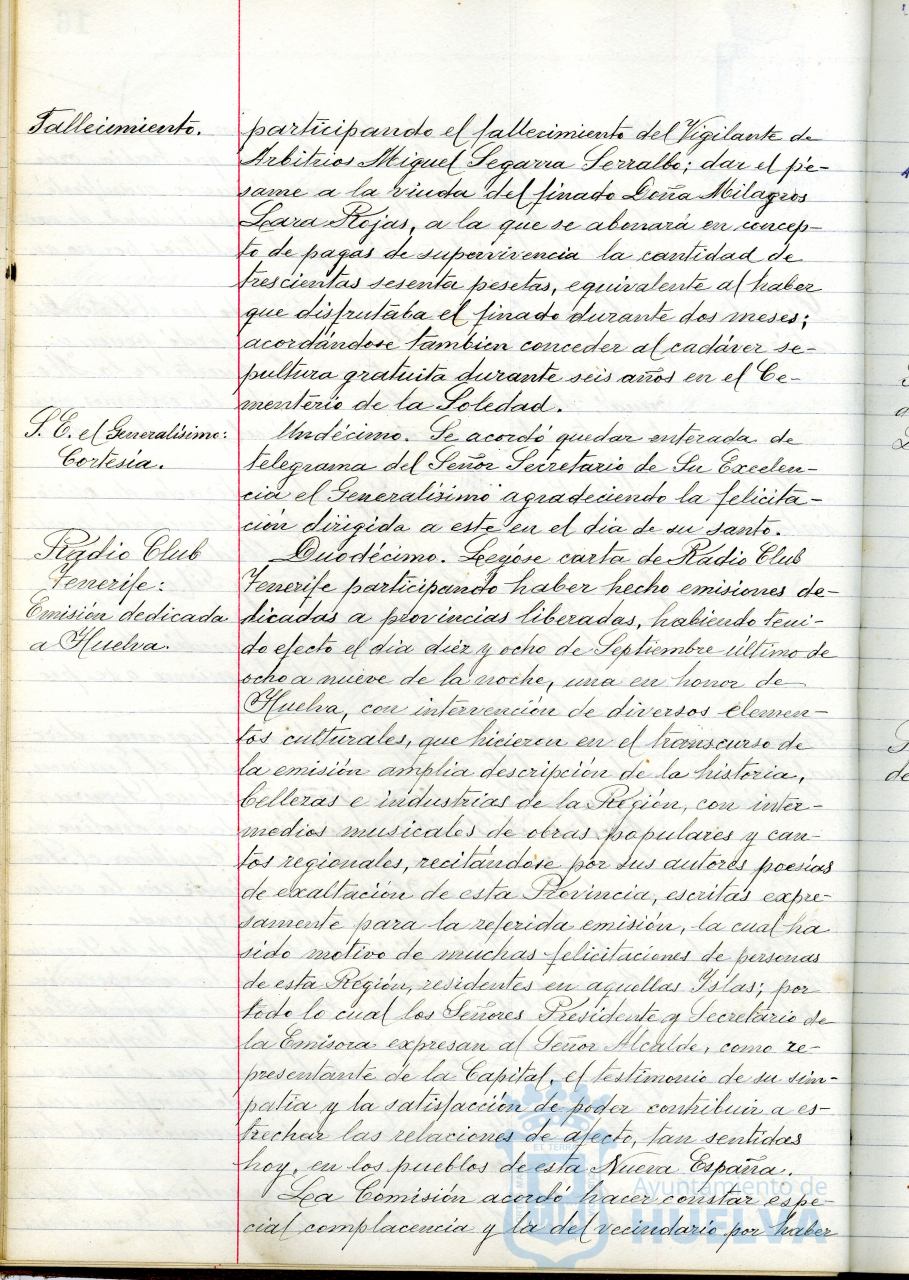 Fallecimiento.
participando el fallecimiento del Vigilante de
Arbitrios Miguel Segarra Serralbo; dar el pé-
same a la viuda del finado Doña Milagros
Lara Rojas, a la que se abonará en concep-
to de pagas de supervivencia la cantidad de
trescientas sesenta pesetas, equivalente al haber
que disfrutaba el finado durante dos meses;
acordándose tambien conceder al cadáver se-
pultura gratuita durante seis años en el Ce-
menterio de la Soledad.
S. E. el Generalísimo:
Cortesía.
Undécimo. Se acordó quedar enterada de
telegrama del Señor Secretario de Su Excelen-
cia el Generalísimo agradeciendo la felicita-
ción dirigida a este en el dia de su santo.
Radio Club
Tenerife:
Emisión dedicada
a Huelva.
Duodécimo. Leyóse carta de Radio Club
Tenerife participando haber hecho emisiones de-
dicadas a provincias liberadas, habiendo teni-
do efecto el dia diez y ocho de Septiembre último de
ocho a nueve de la noche, una en honor de
Huelva, con intervención de diversos elemen-
tos culturales, que hicieron en el transcurso de
la emisión amplia descripción de la historia,
bellezas e industrias de la Región, con inter-
medios musicales de obras populares y can-
tos regionales, recitándose por sus autores poesías
de exaltación de esta Provincia, escritas expre-
samente para la referida emisión, la cual ha
sido motivo de muchas felicitaciones de personas
de esta Región, residentes en aquellas Islas; por
todo lo cual los Señores Presidente y Secretario de
la Emisora expresan al Señor Alcalde, como re-
presentante de la Capital, el testimonio de su sim-
patia y la satisfacción de poder contribuir a es-
trechar las relaciones de afecto, tan sentidas
hoy, en los pueblos de esta Nueva España.
La Comisión acordó hacer constar espe-
cial complacencia y la del vecindario por haber
Ayuntamiento de
HUELVA